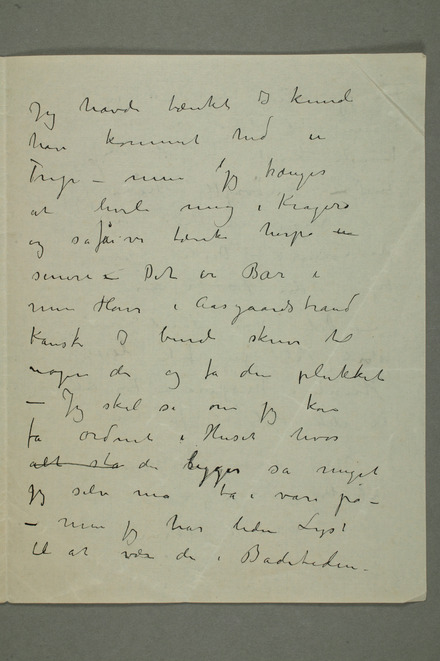 Jeg havde tænkt I kunde
have kommet ned en
Tur – men jeg trænger
at hvile mig i Kragerø
og så får vi tænke herpå
senere – Det er Bær i
min Have i Aasgaardstrand
Kanske I kunde skrive til
nogen der og få dem plukket
– Jeg skal se om jeg kan
få ordnet i Huset hvor
alt sta der ligger så meget
jeg selv må ta i vare på –
– men jeg har liden Lyst
til at være der i Badetiden –